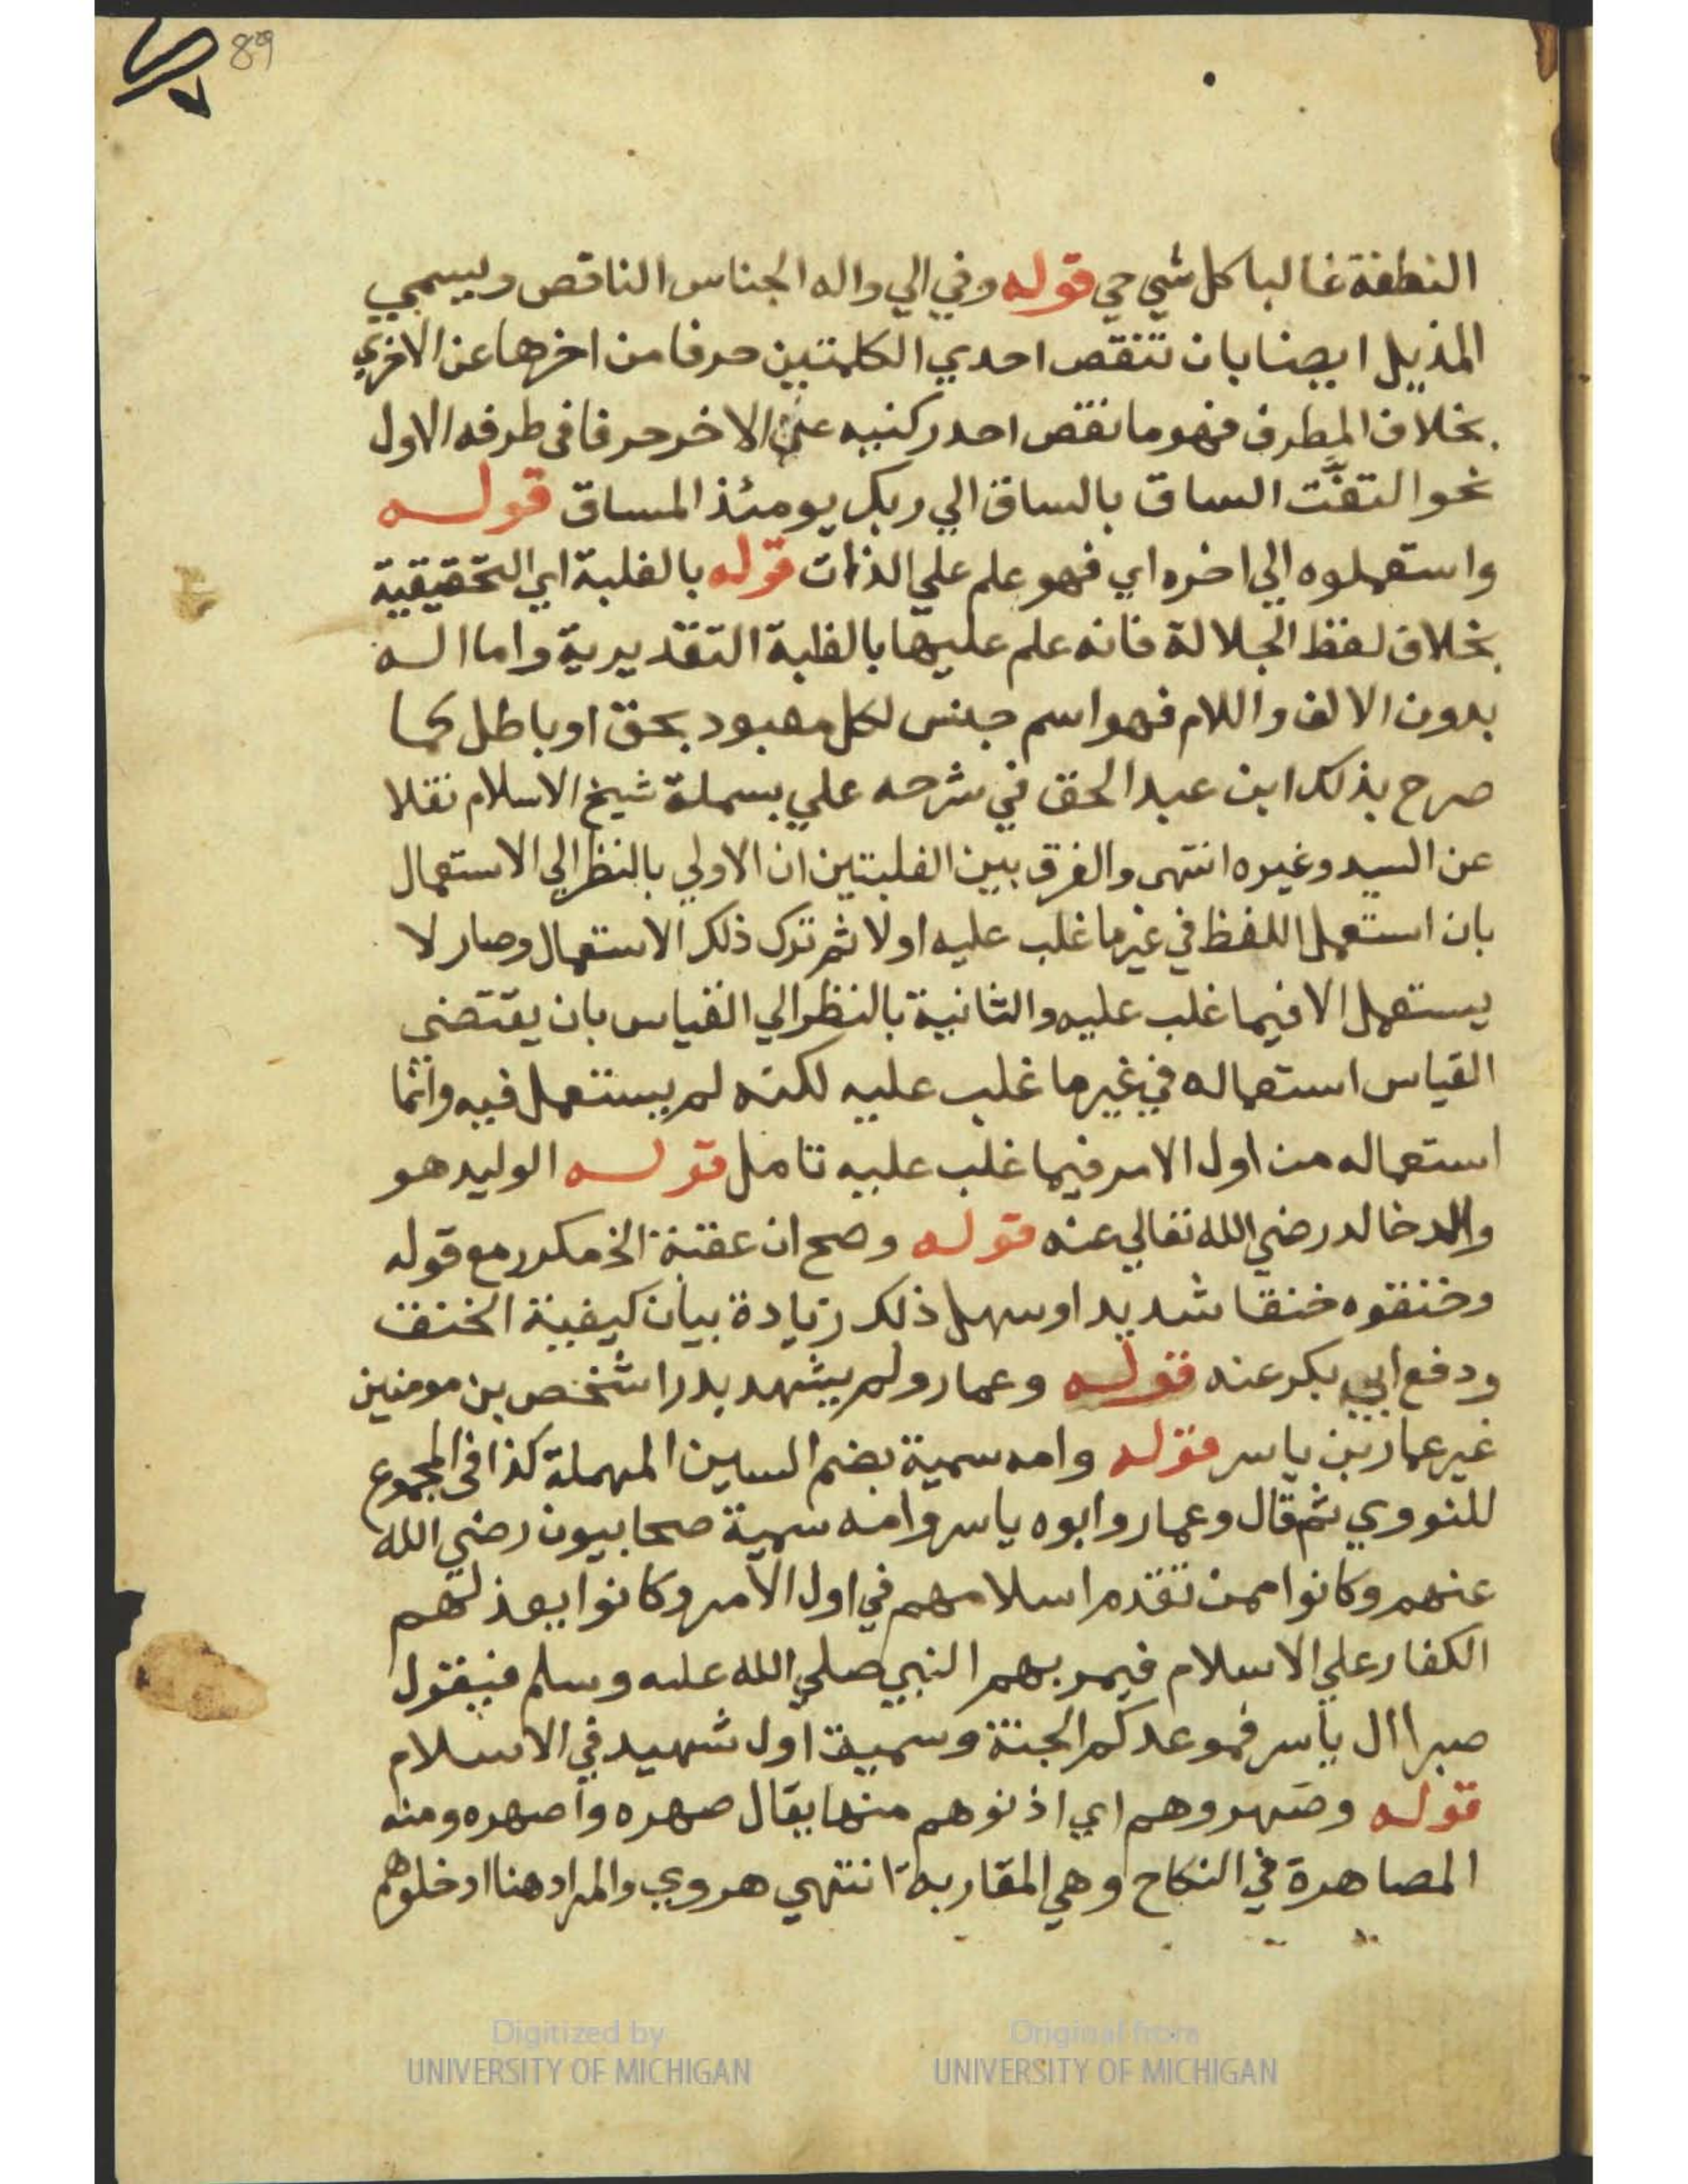 89
النطفة غالبا كل شي حي قوله وفي الي واله الجناس الناقص ويسمي
المذيل ايضا بان تنقص احدي الكلمتين حرفا من اخرها عن الاخري
بخلاف المطرف فهو ما نقص احد ركنيه عن الاخر حرفا في طرفه الاول
نحو التفَّت الساق بالساق الي ربك يومئذ المساق قوله
واستعملوه الي اخره اي فهو علم علي الذات قوله بالغلبة اي التحقيقية
بخلاف لفظ الجلالة فانه علم عليها بالغلبة التقديرية واما اله
بدون الالف واللام فهو اسم جنس لكل معبود بحق او باطل كما
صرح بذلك ابن عبد الحق في شرحه علي بسملة شيخ الاسلام نقلا
عن السيد وغيره انتهى والفرق بين الغلبتين ان الاولي بالنظر الي الاستعمال
بان استعمل اللفظ في غير ما غلب عليه اولا ثم ترك ذلك الاستعمال وصار لا
يستعمل الا فيما غلب عليه والثانية بالنظر الي القياس بان يقتضى
القياس استعماله في غير ما غلب عليه لكنه لم يستعمل فيه وانما
استعماله من اول الامر فيما غلب عليه تامل قوله الوليد هو
والد خالد رضي الله تعالي عنه قوله وصح ان عقبة الخ مكرر مع قوله
وخنقوه خنقا شديدا وسهل ذلك زيادة بيان كيفية الخنق
ودفع ابي بكر عنه قوله وعمار ولم يشهد بدرا شخص بن مومنين
غير عمار بن ياسر قوله وامه سمية بضم السين المهملة كذا في المجموع
للنووي ثم قال وعمار وابوه ياسر وامه سمية صحابيون رضي الله
عنهم وكانوا ممن تقدم اسلامهم في اول الامر وكانوا يعذلهم
الكفار علي الاسلام فيمر بهم النبي صلي الله عليه وسلم فيقول
صبرا ال ياسر فموعدكم الجنة وسمية اول شهيد في الاسلام
قوله وصهروهم اي اذنوهم منها يقال صهره واصهره ومنه
المصاهرة في النكاح وهي المقاربة انتهي هروي والمراد هنا ادخلوهم
Digitized by
UNIVERSITY OF MICHIGAN
Original from
UNIVERSITY OF MICHIGAN